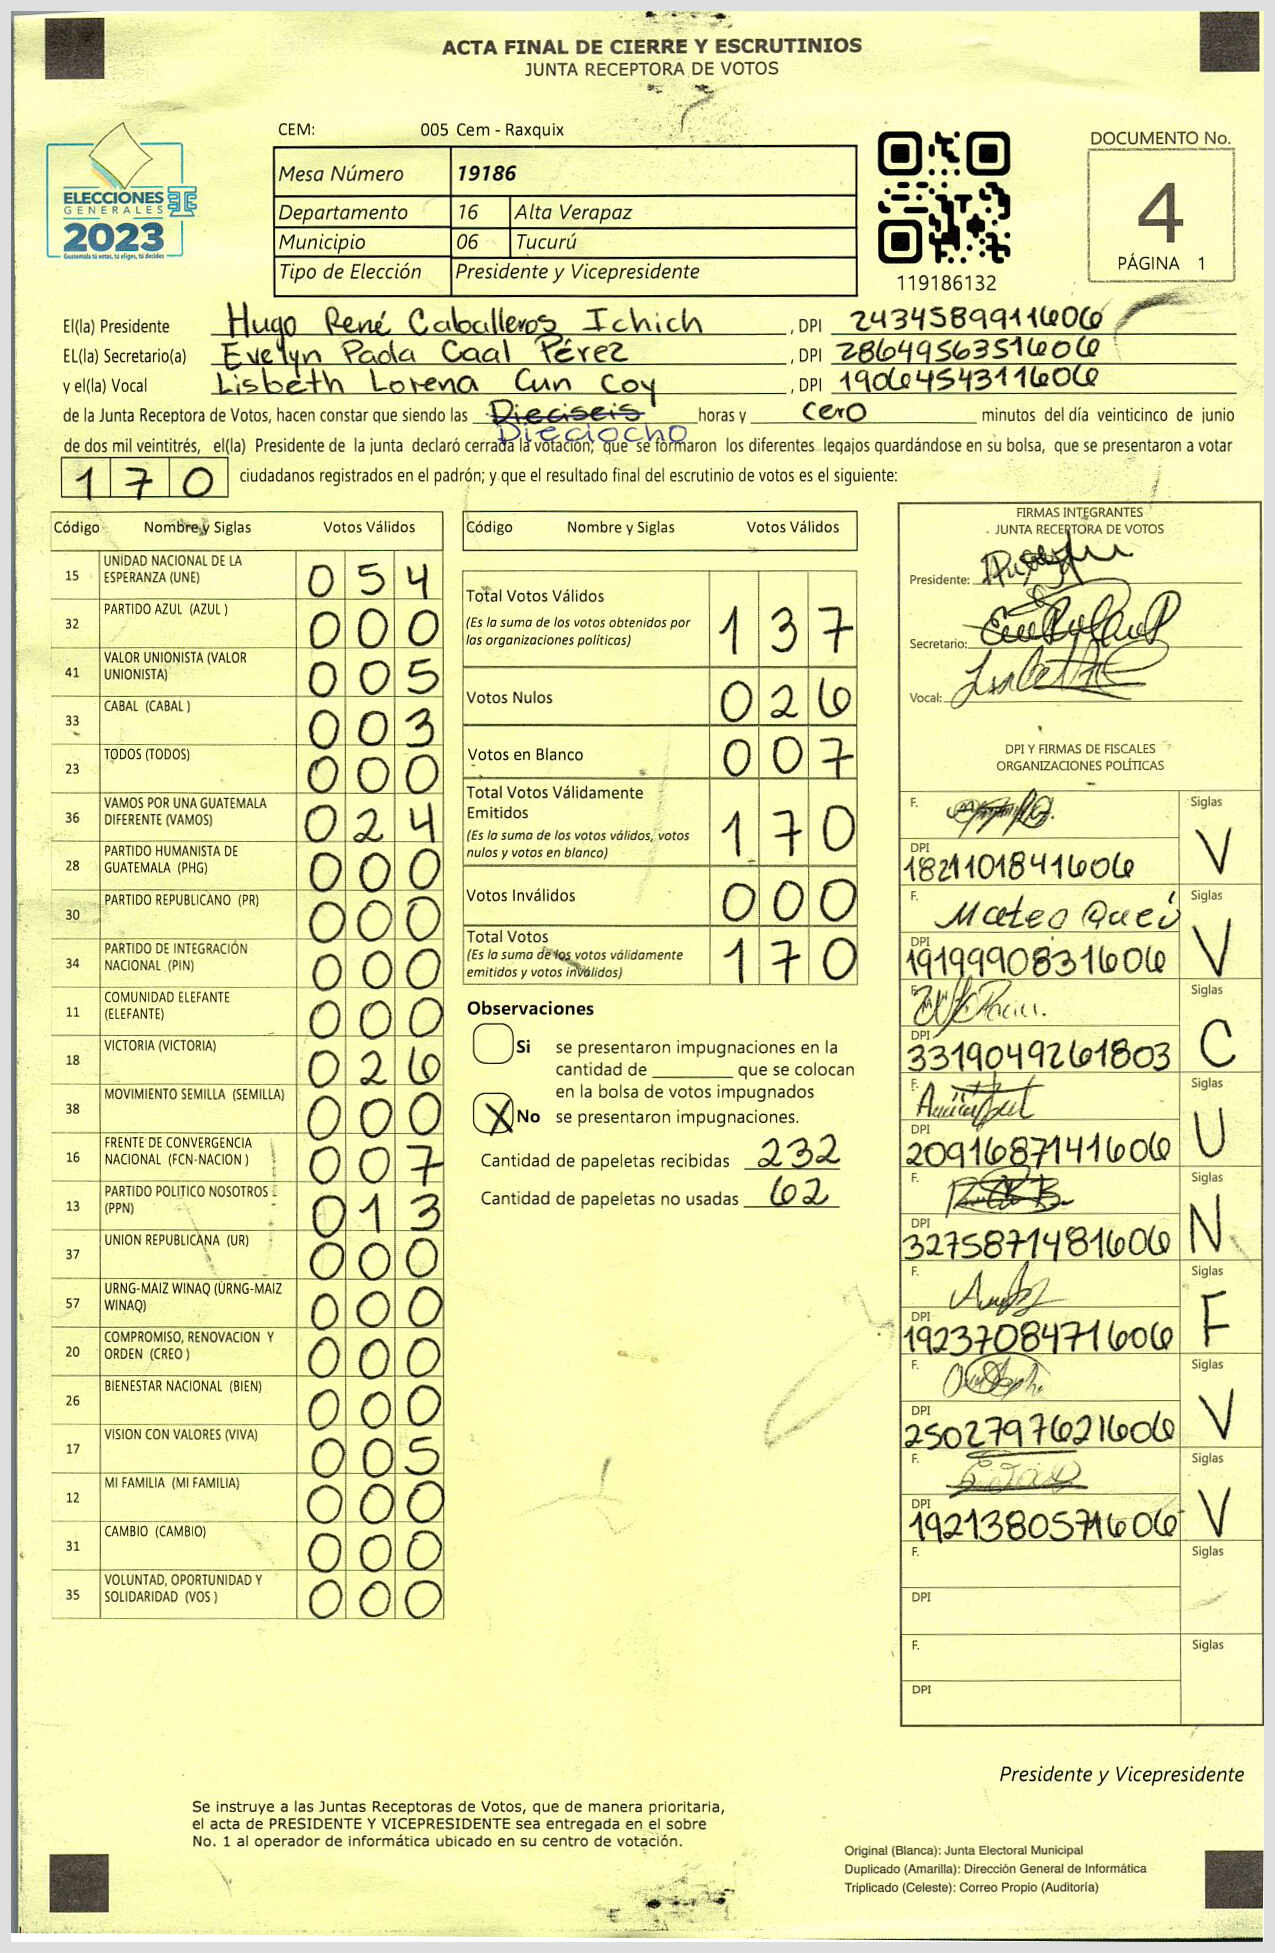 ACTA FINAL DE CIERRE Y ESCRUTINIOS
JUNTA RECEPTORA DE VOTOS
CEM: 005 Cem - Raxquix
ELECCIONES
GENERALES
2023
Guatemala tú votas, tú eliges, tú decides
Mesa Número 19186
Departamento 16 Alta Verapaz
Municipio 06 Tucurú
Tipo de Elección Presidente y Vicepresidente
119186132
DOCUMENTO No.
4
PÁGINA 1
El(la) Presidente Hugo René Caballeros Ichich , DPI 2434589911606
EL(la) Secretario(a) Evelyn Paola Caal Pérez , DPI 2864956351606
y el(la) Vocal Lisbeth Lorena Cun Coy , DPI 1906454311606
de la Junta Receptora de Votos, hacen constar que siendo las Dieciseis horas y cero minutos del día veinticinco de junio
Dieciocho
de dos mil veintitrés, el(la) Presidente de la junta declaró cerrada la votación, que se formaron los diferentes legajos guardándose en su bolsa, que se presentaron a votar
170 ciudadanos registrados en el padrón; y que el resultado final del escrutinio de votos es el siguiente:
Código Nombre y Siglas Votos Válidos
15 UNIDAD NACIONAL DE LA ESPERANZA (UNE) 054
32 PARTIDO AZUL (AZUL ) 000
41 VALOR UNIONISTA (VALOR UNIONISTA) 005
33 CABAL (CABAL ) 003
23 TODOS (TODOS) 000
36 VAMOS POR UNA GUATEMALA DIFERENTE (VAMOS) 024
28 PARTIDO HUMANISTA DE GUATEMALA (PHG) 000
30 PARTIDO REPUBLICANO (PR) 000
34 PARTIDO DE INTEGRACIÓN NACIONAL (PIN) 000
11 COMUNIDAD ELEFANTE (ELEFANTE) 000
18 VICTORIA (VICTORIA) 026
38 MOVIMIENTO SEMILLA (SEMILLA) 000
16 FRENTE DE CONVERGENCIA NACIONAL (FCN-NACION ) 007
13 PARTIDO POLITICO NOSOTROS (PPN) 013
37 UNION REPUBLICANA (UR) 000
57 URNG-MAIZ WINAQ (URNG-MAIZ WINAQ) 000
20 COMPROMISO, RENOVACION Y ORDEN (CREO ) 000
26 BIENESTAR NACIONAL (BIEN) 000
17 VISION CON VALORES (VIVA) 005
12 MI FAMILIA (MI FAMILIA) 000
31 CAMBIO (CAMBIO) 000
35 VOLUNTAD, OPORTUNIDAD Y SOLIDARIDAD (VOS ) 000
Código Nombre y Siglas Votos Válidos
Total Votos Válidos 137
(Es la suma de los votos obtenidos por
las organizaciones políticas)
Votos Nulos 026
Votos en Blanco 007
Total Votos Válidamente
Emitidos 170
(Es la suma de los votos válidos, votos
nulos y votos en blanco)
Votos Inválidos 000
Total Votos 170
(Es la suma de los votos válidamente
emitidos y votos inválidos)
Observaciones
Si se presentaron impugnaciones en la
cantidad de ________ que se colocan
en la bolsa de votos impugnados
X No se presentaron impugnaciones.
Cantidad de papeletas recibidas 232
Cantidad de papeletas no usadas 62
FIRMAS INTEGRANTES
JUNTA RECEPTORA DE VOTOS
Presidente:
Secretario:
Vocal:
DPI Y FIRMAS DE FISCALES
ORGANIZACIONES POLÍTICAS
F. Siglas V
DPI 1821101841606
F. Mateo Quej Siglas V
DPI 1919990831606
F. Siglas C
DPI 3319049261803
F. Siglas U
DPI 2091687141606
F. Siglas N
DPI 3275871481606
F. Siglas F
DPI 1923708471606
F. Siglas V
DPI 2502797621606
F. Siglas V
DPI 1921380571606
F. Siglas
DPI
F. Siglas
DPI
Presidente y Vicepresidente
Se instruye a las Juntas Receptoras de Votos, que de manera prioritaria,
el acta de PRESIDENTE Y VICEPRESIDENTE sea entregada en el sobre
No. 1 al operador de informática ubicado en su centro de votación.
Original (Blanca): Junta Electoral Municipal
Duplicado (Amarilla): Dirección General de Informática
Triplicado (Celeste): Correo Propio (Auditoría)